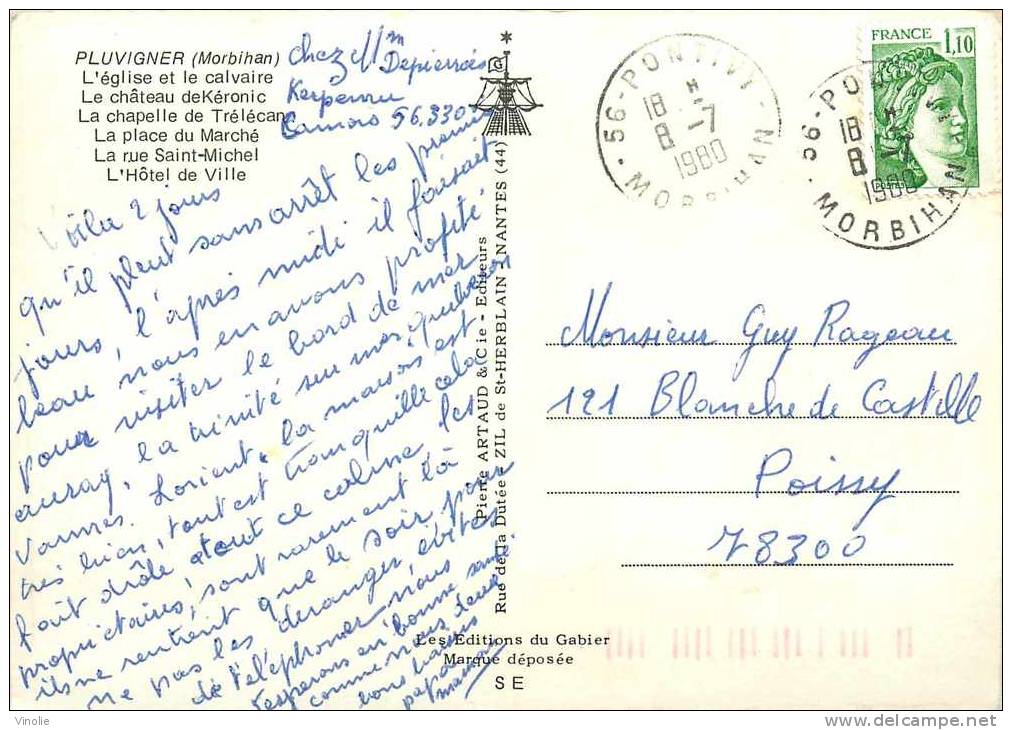 PLUVIGNER (Morbihan)
L'église et le calvaire
Le château de Kéronic
La chapelle de Trélécan
La place du Marché
La rue Saint-Michel
L'Hôtel de Ville
chez Mm
Depierrois
Kerperru
Camors 56.330
Voila 2 jours
qu'il pleut sans arrêt les premiers
jours, l'après midi il faisait
beau nous en avons profité
pour visiter le bord de mer
auray, la trinité sur mer, quiberon
Vannes. Lorient. la maison est
très bien, tout est tranquille cela
fait drôle tout ce calme, les
propriétaires, sont rarement là
ils ne rentrent que le soir pour
ne pas les déranger, évites
de téléphoner nous
t'espérons en bonne santé
comme nous deux.
bons baisers
papa
maman
Pierre ARTAUD & Cie - Editeurs
Rue de la Dutée - ZIL de St-HERBLAIN - NANTES (44)
Les Editions du Gabier
Marque déposée
SE
56-PONTIVY-
18
8 -7
1980
MORBIHAN
FRANCE 1,10
POSTES
56-PO
18
8
1980
MORBIHAN
Monsieur Guy Rageau
121 Blanche de Castille
Poissy
78300
Vinolie
www.delcampe.net